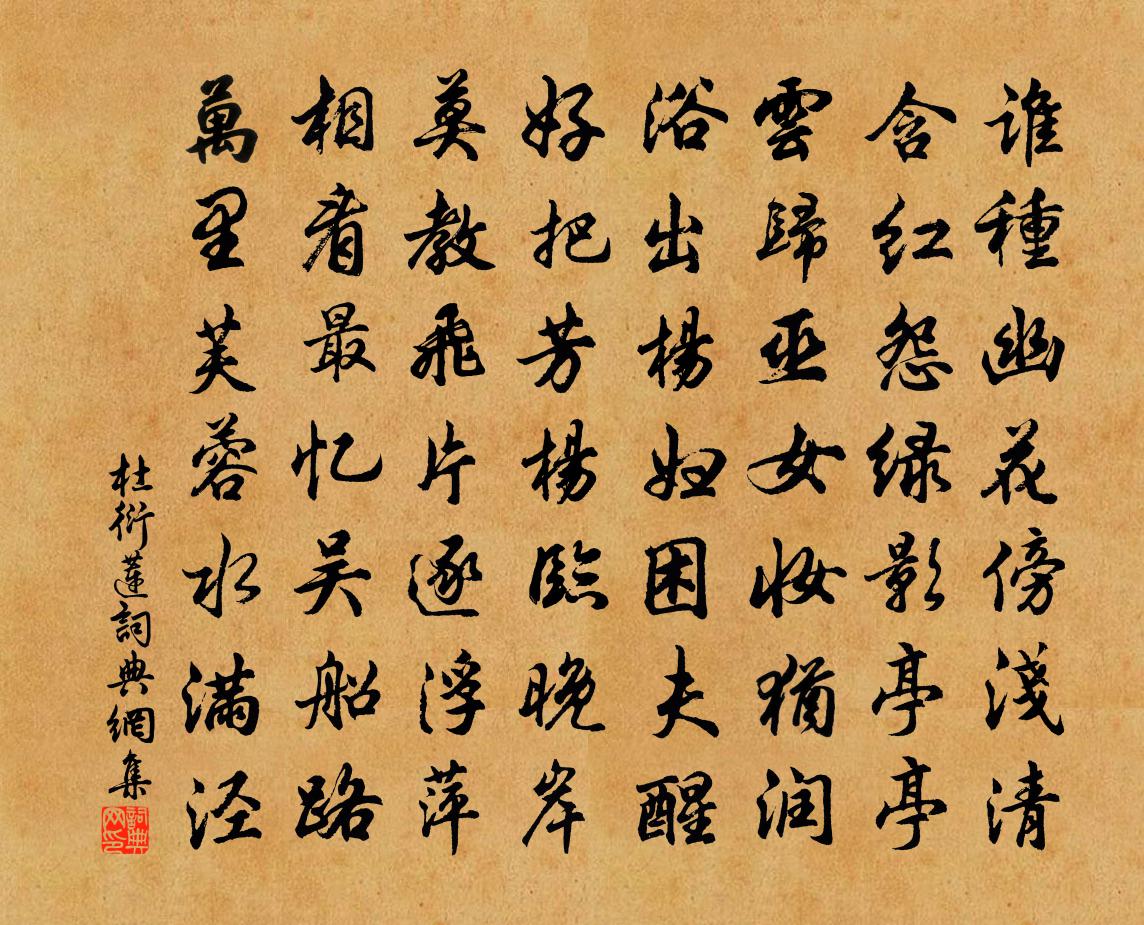 谁種幽花傍淺清
含红怨绿影亭亭
雲歸巫女妆猶润
浴出楊妃困夫醒
好把芳楊臨晚岸
莫教飛片逐浮萍
相看最忆吴船路
萬里芙蓉水满泾
杜衍蓮詞典網集
詞典网印